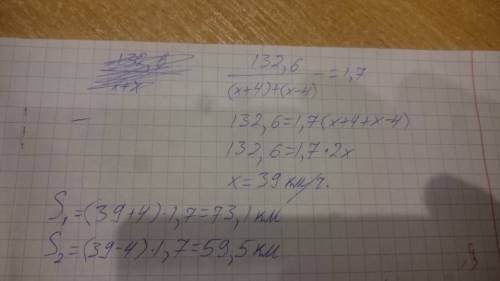 132,6
x+x
132,6 / (x+4)+(x-4) = 1,7
132,6=1,7(x+4+x-4)
132,6=1,7·2x
x=39 км/ч.
S₁=(39+4)·1,7=73,1 км
S₂=(39-4)·1,7=59,5 км